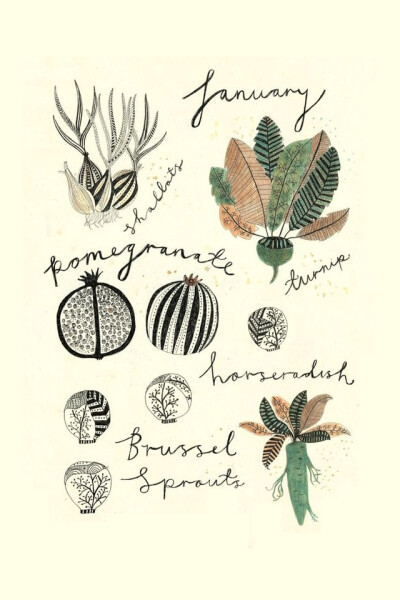 January
shallots
pomegranate
turnip
horseradish
Brussel
Sprouts